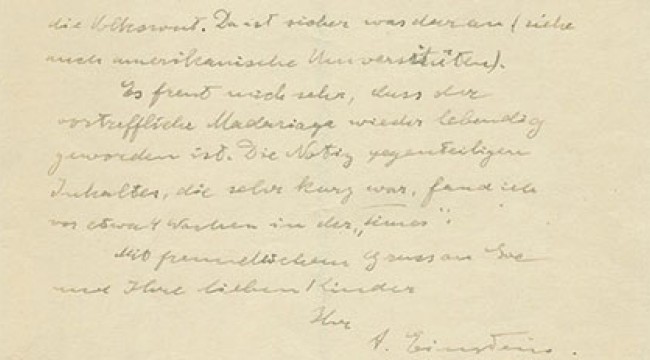 die Volkswut. Da ist sicher was daran (siehe
auch amerikanische Universitäten).
Es freut mich sehr, dass der
vortreffliche Madariaga wieder lebendig
geworden ist. Die Notiz gegenteiligen
Inhaltes, die sehr kurz war, fand ich
vor etwa 4 Wochen in der „Times".
Mit freundlichem Gruss an Sie
und Ihre lieben Kinder
Ihr
A. Einstein.